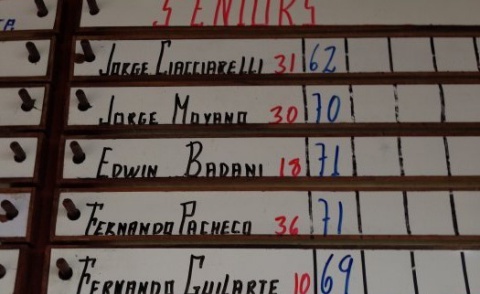 SENIORS
JORGE CIACCIARELLI 31 62
JORGE MOYANO 30 70
EDWIN BADANI 18 71
FERNANDO PACHECO 36 71
FERNANDO GUILARTE 10 69